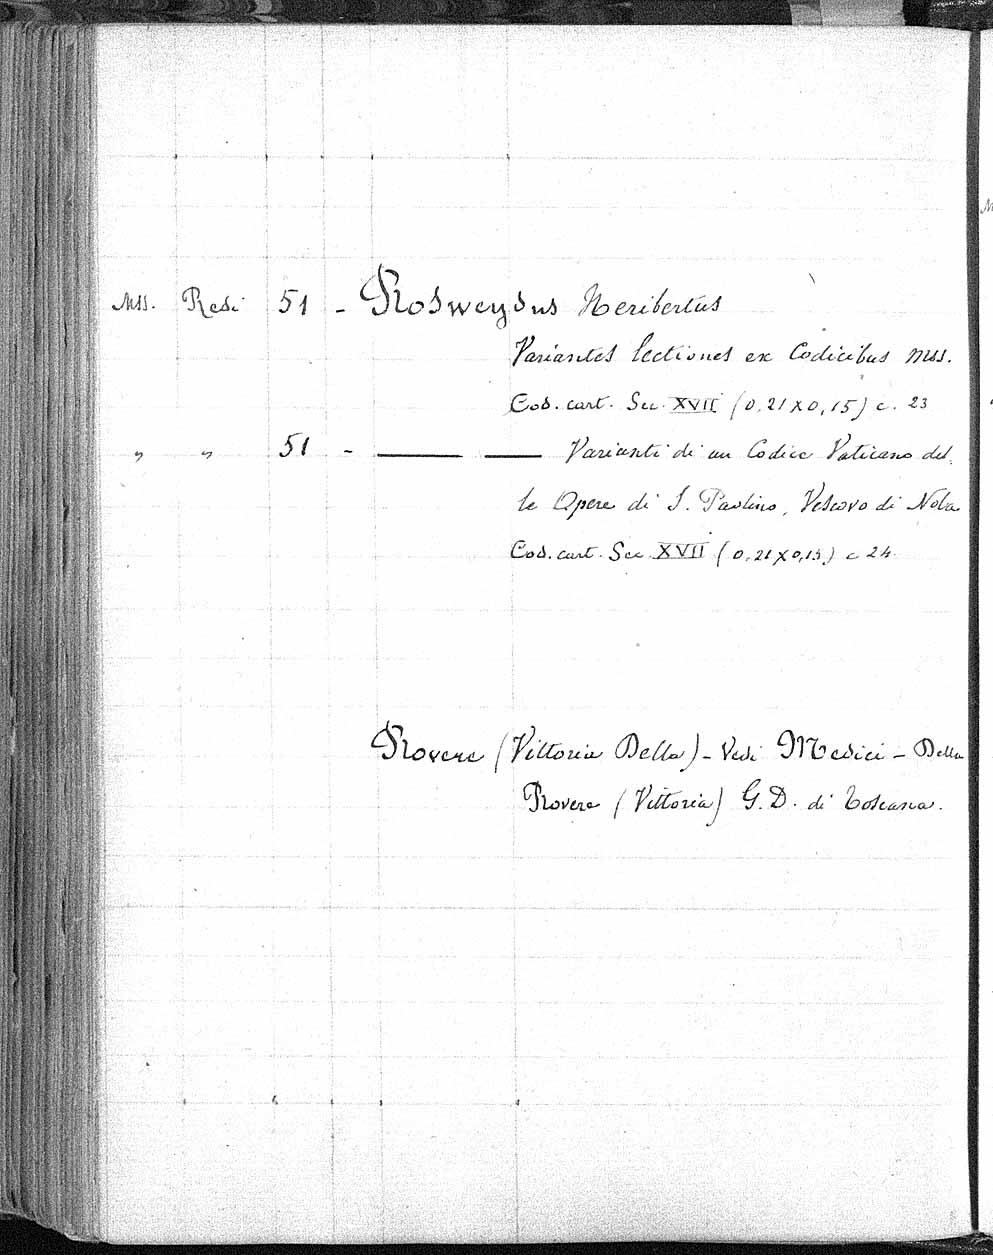 Mss. Redi 51 - Rosweydus Heribertus
Variantes lectiones ex Codicibus mss.
Cod. cart. Sec. XVII (0,21 x 0,15) c. 23
" " 51 - —— —— Varianti di un Codice Vaticano del
le Opere di S. Paolino, Vescovo di Nola
Cod. cart. Sec. XVII (0,21 x 0,15) c 24.
Rovere (Vittoria Della) - Vedi Medici - Della
Rovere (Vittoria) G. D. di Toscana.